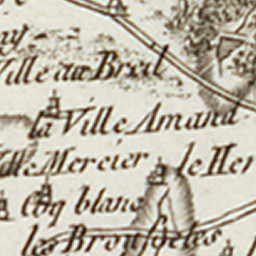 Ville au Breil
la Ville Amand
Ville Mercier le Her
Coq blanc
les Brousselles